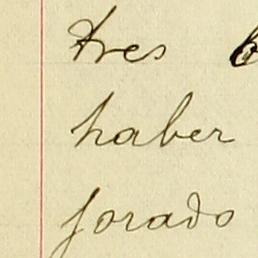 tres
haber
forado